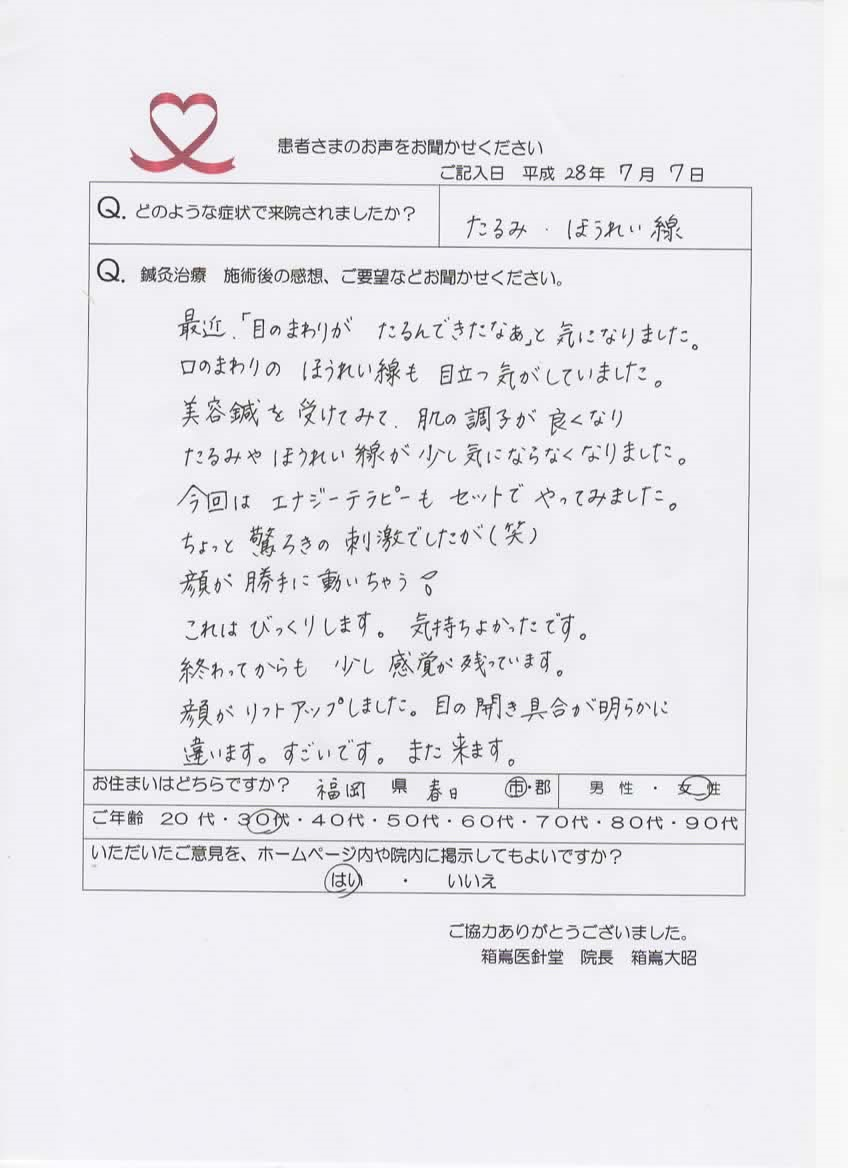 患者さまのお声をお聞かせください
ご記入日 平成 28年 7月 7日
Q. どのような症状で来院されましたか？
たるみ ・ ほうれい線
Q. 鍼灸治療 施術後の感想、ご要望などお聞かせください。
最近、「目のまわりが たるんできたなぁ」と 気になりました。
口のまわりの ほうれい線も 目立つ気がしていました。
美容鍼を 受けてみて、肌の調子が 良くなり
たるみや ほうれい線が 少し気にならなくなりました。
今回は エナジーテラピーも セットで やってみました。
ちょっと 驚ろきの 刺激でしたが（笑）
顔が 勝手に動いちゃう!
これは びっくりします。 気持ちよかったです。
終わってからも 少し 感覚が残っています。
顔が リフトアップしました。目の開き具合が明らかに
違います。すごいです。また来ます。
お住まいはどちらですか？ 福岡 県 春日 市・郡 男性 ・ 女性
ご年齢 20代・30代・40代・50代・60代・70代・80代・90代
いただいたご意見を、ホームページ内や院内に掲示してもよいですか？
はい ・ いいえ
ご協力ありがとうございました。
箱嶌医針堂 院長 箱嶌大昭